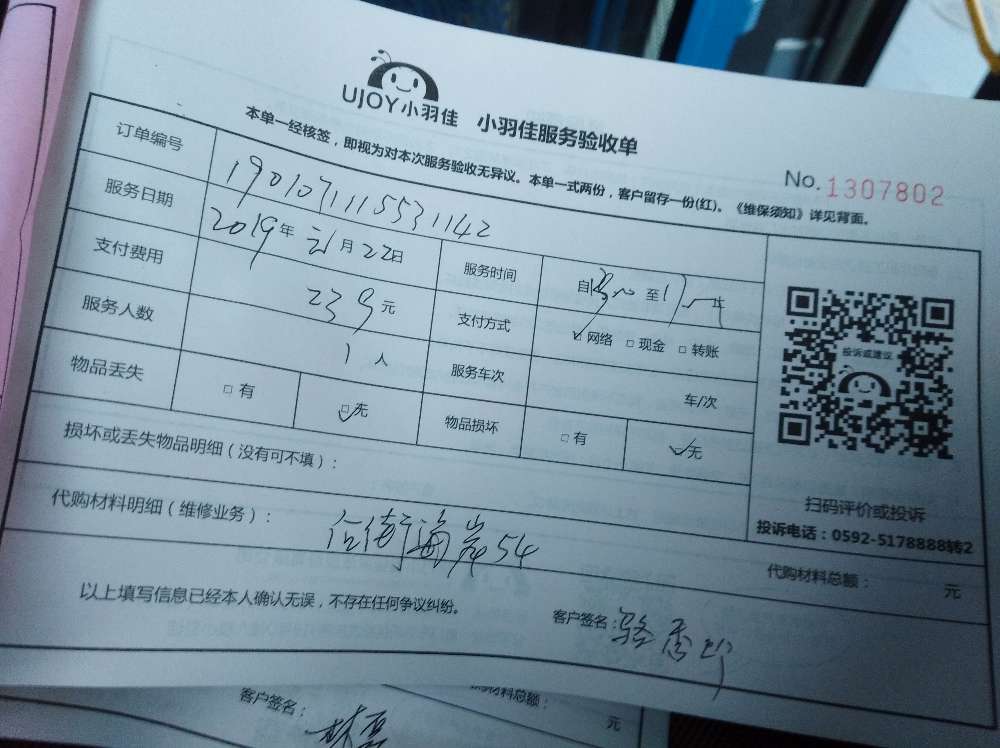 UJOY小羽佳 小羽佳服务验收单
本单一经核签，即视为对本次服务验收无异议。本单一式两份，客户留存一份(红)。《维保须知》详见背面。
No.1307802
订单编号 1901071115531142
服务日期 2019年 月22日 服务时间 自 至17
支付费用 239元 支付方式 网络 现金 转账
服务人数 1人 服务车次 车/次
物品丢失 有 无 物品损坏 有 无
损坏或丢失物品明细（没有可不填）：
代购材料明细（维修业务）：
海岸54
投诉或建议
扫码评价或投诉
投诉电话：0592-5178888转2
代购材料总额： 元
以上填写信息已经本人确认无误，不存在任何争议纠纷。
客户签名：骆秀
购材料总额： 元
客户签名：林